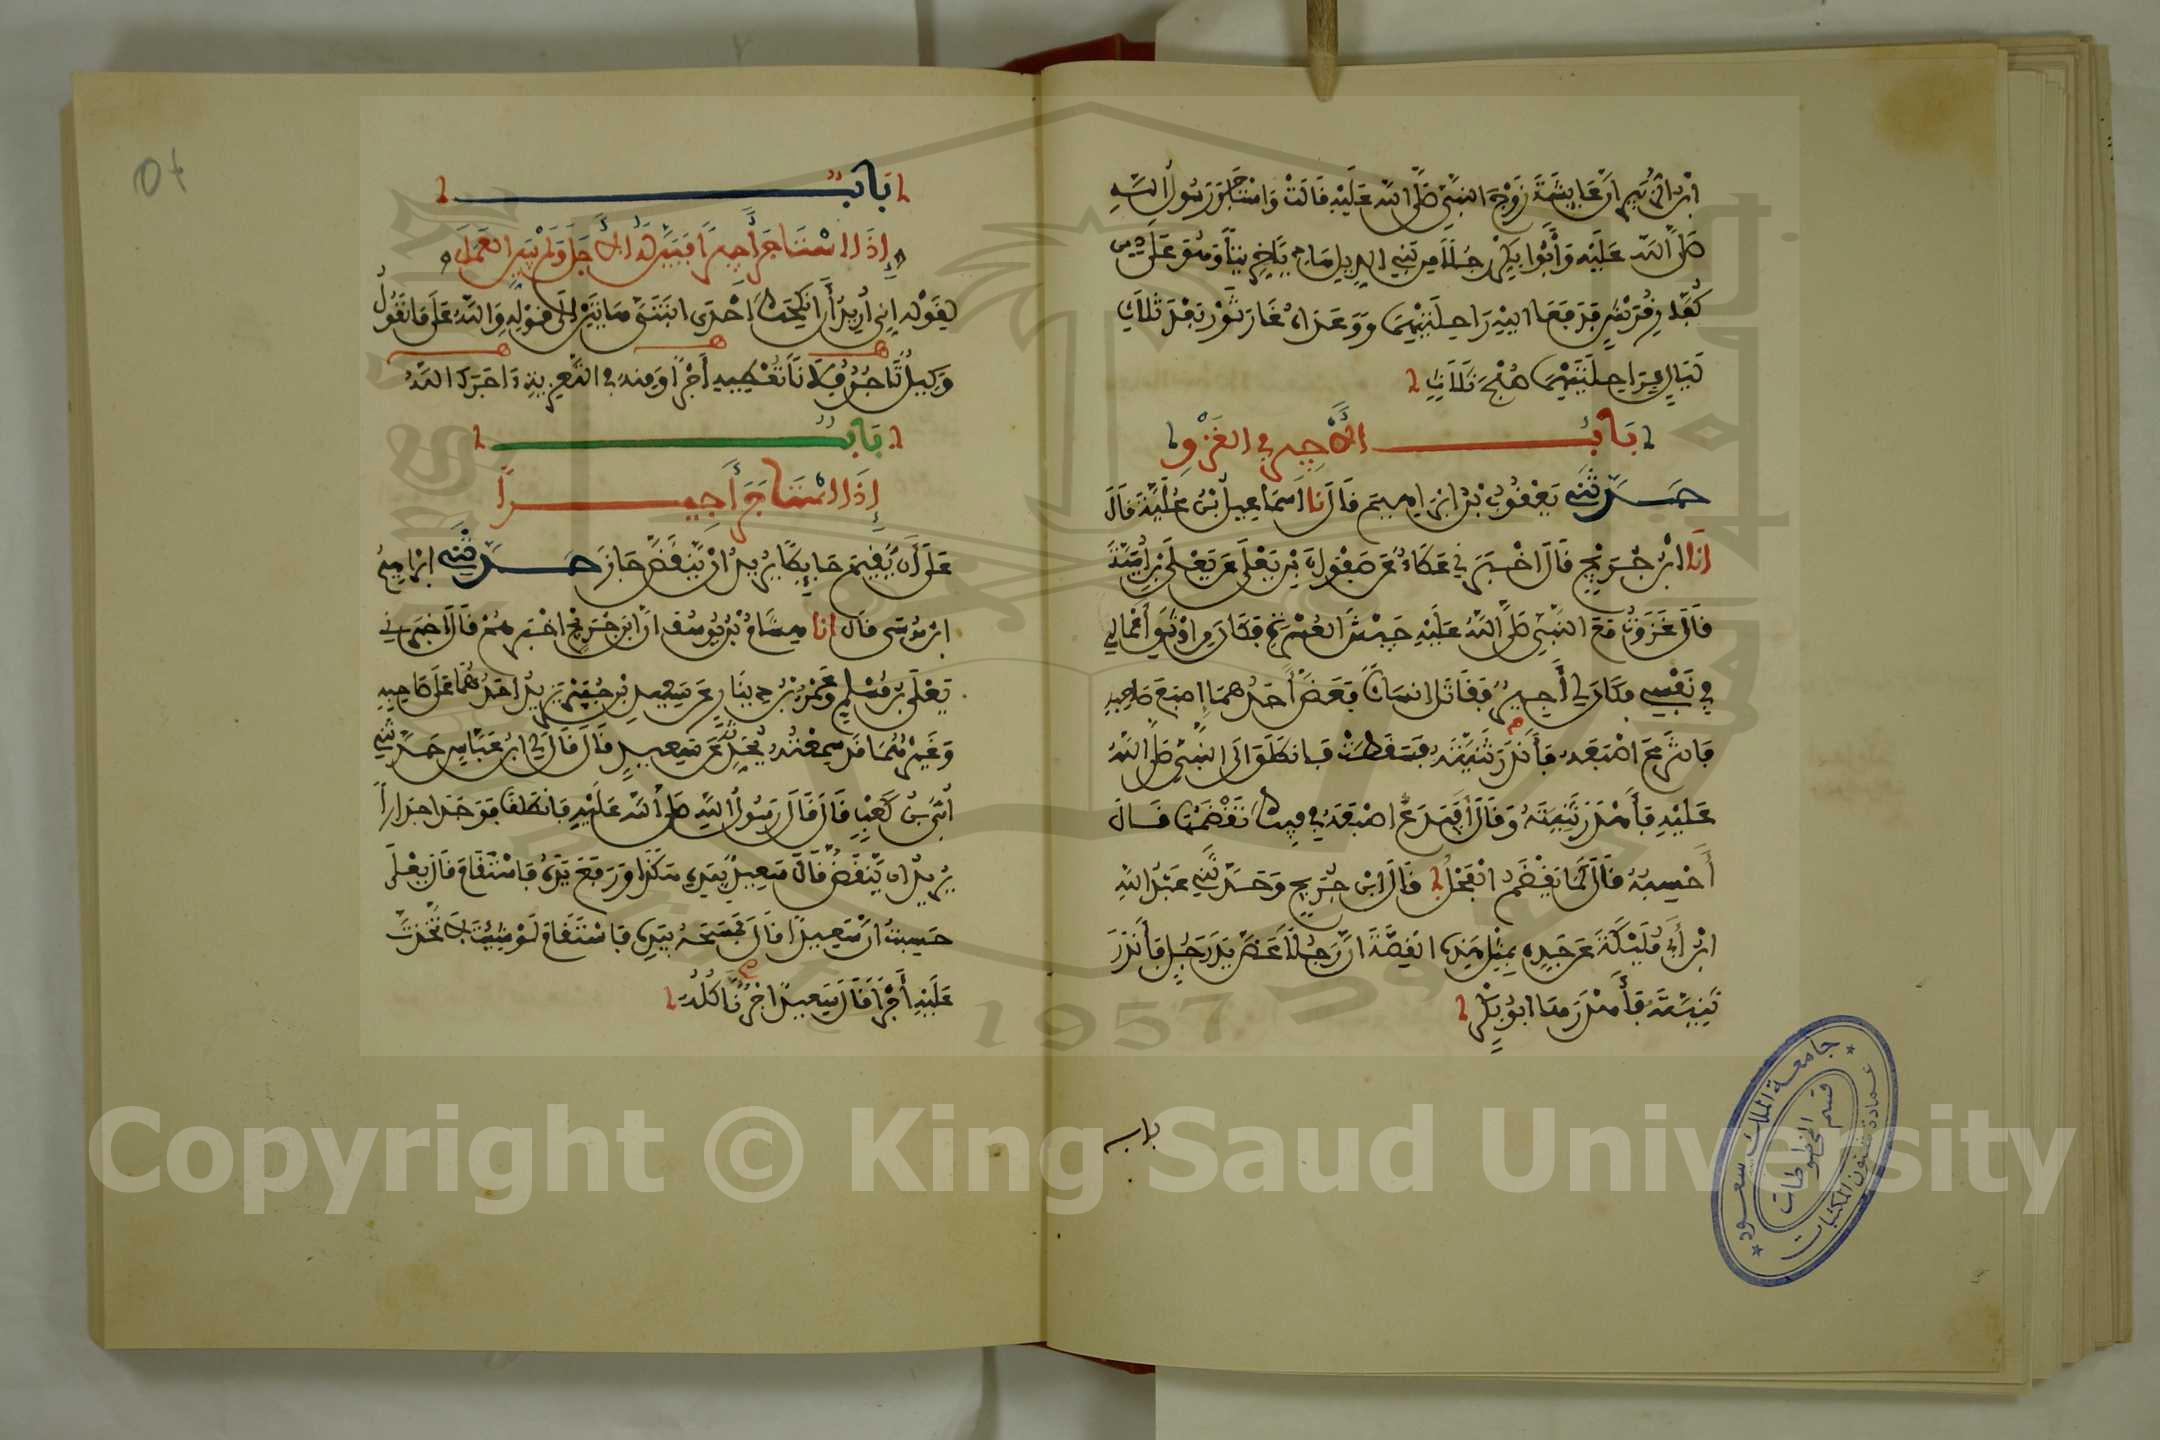 ابن الزبير ان عايشة زوج النبي صلى الله عليه قالت واستاجر رسول الله
صلى الله عليه وأبو بكر رجلا من بني الديل هاديا خريتا وهو على دين
كفار قريش فدفعا اليه راحلتيهما ووعداه غار ثور بعد ثلاث
ليال براحلتيهما صبح ثلاث
باب الأجير في الغزو
حدثني يعقوب بن ابراهيم قال نا اسماعيل ابن علية قال
انا ابن جريج قال اخبرني عطاء عن صفوان بن يعلى عن يعلى بن أمية
قال غزوت مع النبي صلى الله عليه جيش العسرة فكان من اوثق أعمالي
في نفسي فكان لي أجير فقاتل انسانا فعض أحدهما إصبع صاحبه
فانتزع اصبعه فأندر ثنيته فسقطت فانطلق الى النبي صلى الله
عليه فأهدر ثنيته وقال أفيدع اصبعه في فيك تقضمها قال
أحسبه قال كما يقضم الفحل قال ابن جريج وحدثني عبد الله
ابن أبي مليكة عن جده بمثل هذه القصة ان رجلا عض يد رجل فأندر
ثنيته فأهدرها ابو بكر
باب
باب
إذا استاجر أجيرا فبين له الأجل ولم يبين العمل
لقوله إني أريد أن انكحك إحدى ابنتي هاتين الى قوله والله على ما نقول
وكيل ياجر فلانا تعطيه أجرا ومنه في التعزية ءاجرك الله
باب
إذا استاجر أجيرا
على أن يقيم حايطا يريد ان ينقض جاز حدثني ابراهيم
ابن موسى قال انا هشام بن يوسف ان ابن جريج اخبرهم قال اخبرني
يعلى بن مسلم وعمرو بن دينار عن سعيد بن جبير يزيد احدهما على صاحبه
وغيرهما قد سمعته يحدثه عن سعيد قال قال لي ابن عباس حدثني
أبي بن كعب قال قال رسول الله صلى الله عليه فانطلقا فوجدا جدارا
يريد ان ينقض قال سعيد بيده هكذا ورفع يده فاستقام قال يعلى
حسبت ان سعيدا قال فمسحه بيده فاستقام لو شئت لتخذت
عليه أجرا قال سعيد اجرا ناكله
جامعة الملك سعود
عمادة شئون المكتبات
قسم المخطوطات
1957
Copyright © King Saud University